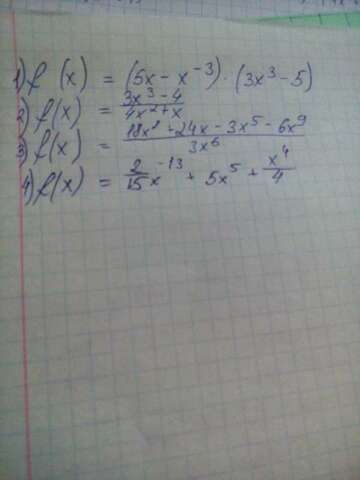 1) f (x) = (5x - x⁻³) · (3x³ - 5)
2) f(x) = (3x³ - 4)/(4x² + x)
3) f(x) = (18x² + 24x - 3x⁵ - 6x⁹)/(3x⁶)
4) f(x) = 2/15 x⁻¹³ + 5x⁵ + x⁴/4